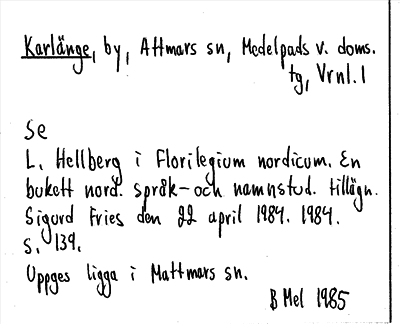 Karlänge, by, Attmars sn, Medelpads v. doms.
tg, Vrnl. 1
Se
L. Hellberg i Florilegium nordicum. En
bukett nord. språk- och namnstud. tillägn.
Sigurd Fries den 22 april 1984. 1984.
S. 139.
Uppges ligga i Mattmars sn.
B Mel 1985